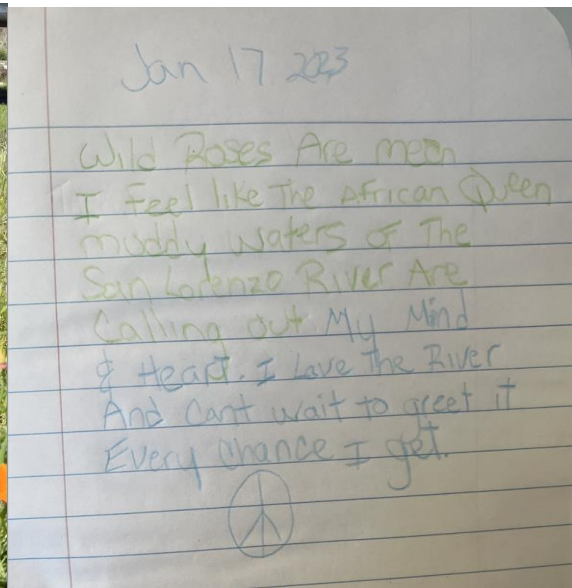 Jan 17 2023
Wild Roses Are mean
I feel like The African Queen
muddy waters of The
San Lorenzo River Are
Calling out My Mind
& Heart. I Love The River
And Cant wait to greet it
Every Chance I get.